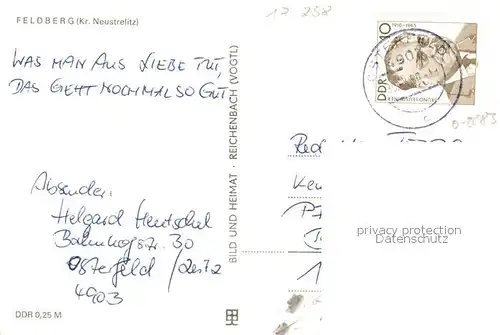 FELDBERG (Kr. Neustrelitz)
17 258
WAS MAN AUS LIEBE TUT,
DAS GEHT NOCHMAL SO GUT
Absender:
Helgard Hentschel
Bahnhofstr. 30
Osterfeld / Zeitz
4903
DDR 0,25 M
BILD UND HEIMAT · REICHENBACH (VOGTL)
DDR
10
1910-1985
Red
Ken
privacy protection
Datenschutz
1